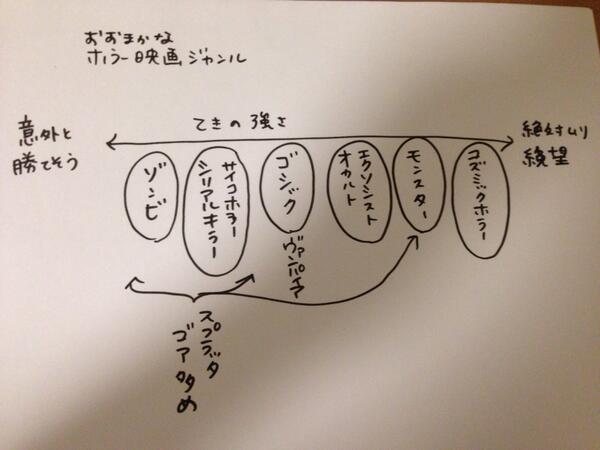 おおまかな
ホラー映画ジャンル
てきの強さ
意外と
勝てそう
絶対ムリ
絶望
ゾンビ
サイコホラー
シリアルキラー
ゴシック
ヴァンパイア
エクソシスト
オカルト
モンスター
コズミックホラー
スプラッタ
ゴア多め